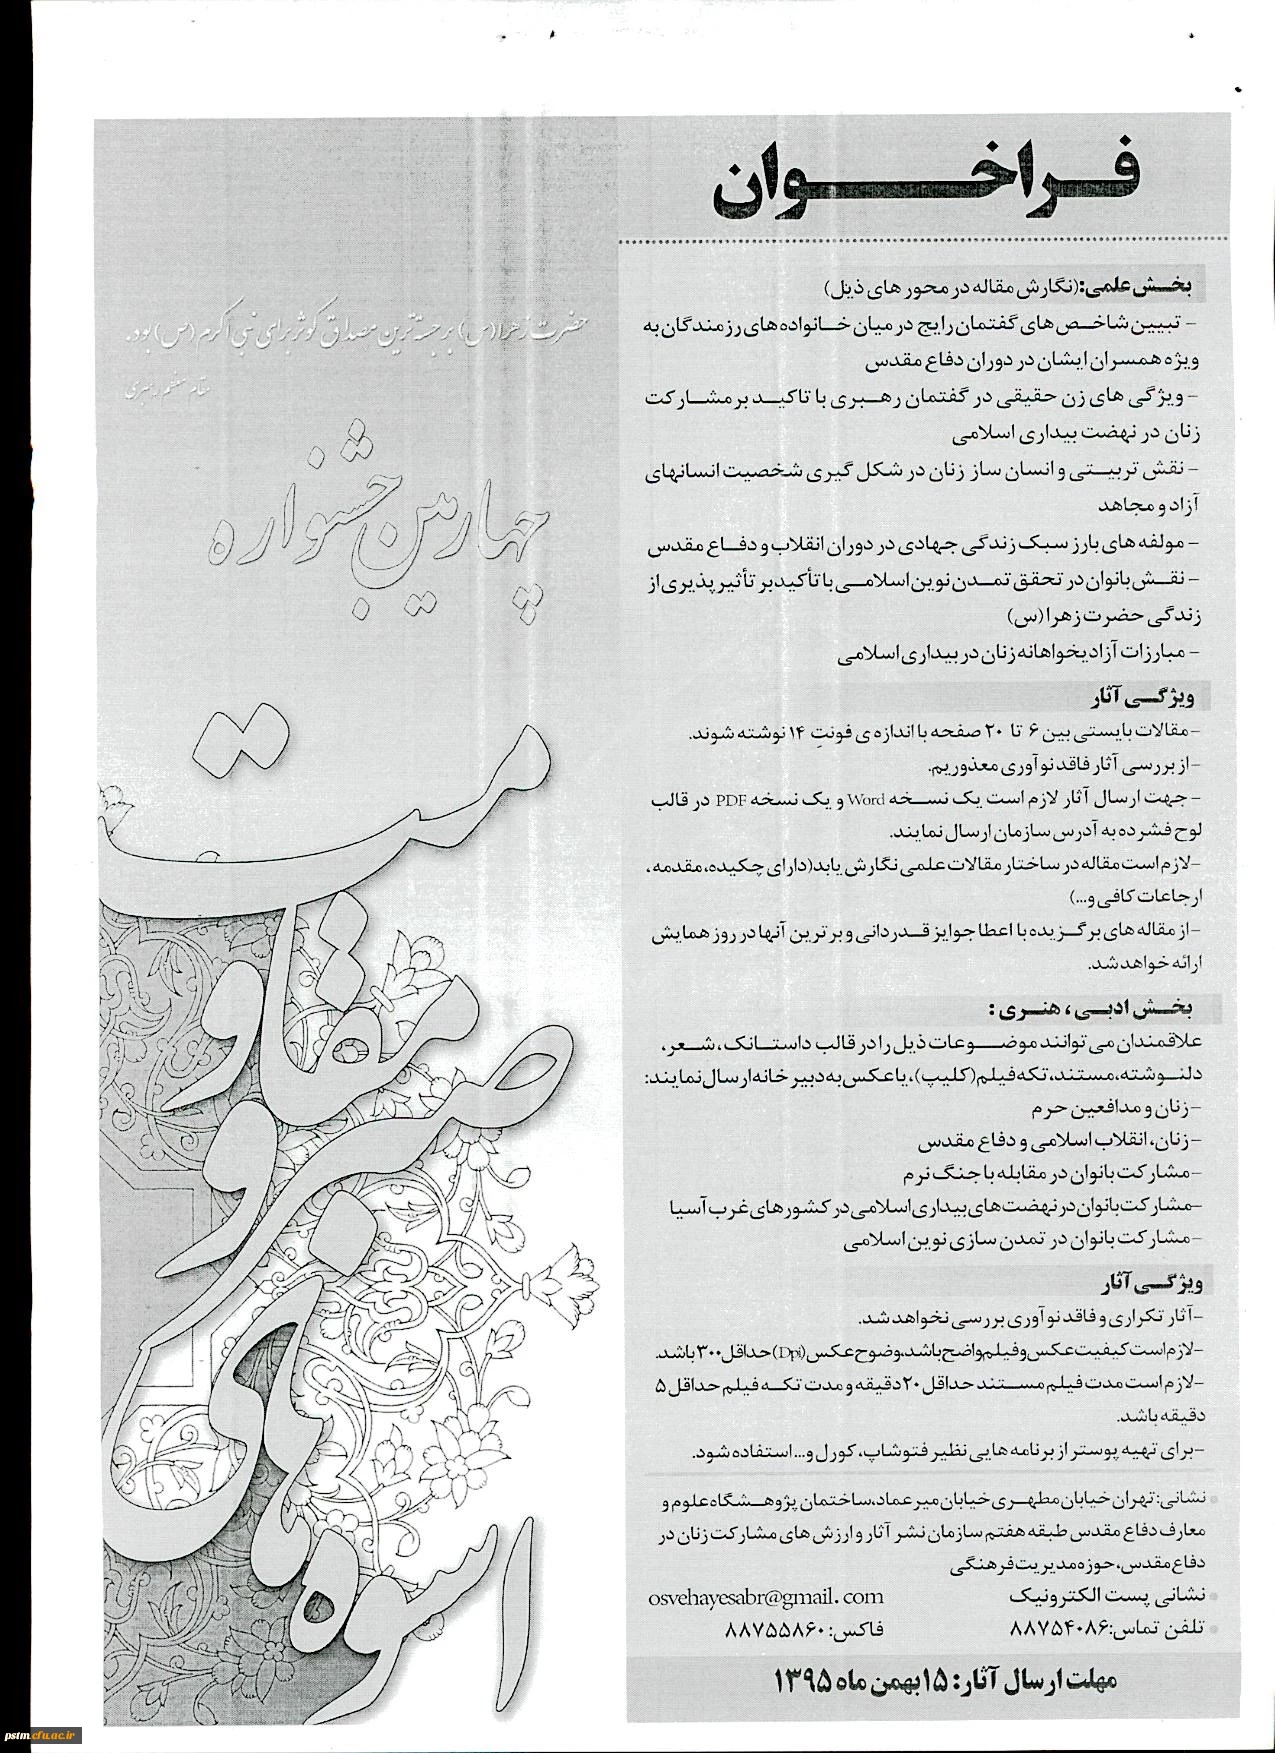 فراخوان
بخش علمی:(نگارش مقاله در محور های ذیل)
- تبیین شاخص های گفتمان رایج در میان خانواده های رزمندگان به
ویژه همسران ایشان در دوران دفاع مقدس
- ویژگی های زن حقیقی در گفتمان رهبری با تاکید بر مشارکت
زنان در نهضت بیداری اسلامی
- نقش تربیتی و انسان ساز زنان در شکل گیری شخصیت انسانهای
آزاد و مجاهد
- مولفه های بارز سبک زندگی جهادی در دوران انقلاب و دفاع مقدس
- نقش بانوان در تحقق تمدن نوین اسلامی با تأکید بر تأثیر پذیری از
زندگی حضرت زهرا (س)
- مبارزات آزادیخواهانه زنان در بیداری اسلامی
ویژگی آثار
-مقالات بایستی بین ۶ تا ۲۰ صفحه با اندازه ی فونتِ ۱۴ نوشته شوند.
-از بررسی آثار فاقد نوآوری معذوریم.
- جهت ارسال آثار لازم است یک نسخه Word و یک نسخه PDF در قالب
لوح فشرده به آدرس سازمان ارسال نمایند.
-لازم است مقاله در ساختار مقالات علمی نگارش یابد(دارای چکیده، مقدمه،
ارجاعات کافی و...)
-از مقاله های برگزیده با اعطا جوایز قدردانی و برترین آنها در روز همایش
ارائه خواهد شد.
بخش ادبی، هنری:
علاقمندان می توانند موضوعات ذیل را در قالب داستانک، شعر،
دلنوشته، مستند، تکه فیلم(کلیپ)، یا عکس به دبیرخانه ارسال نمایند:
-زنان و مدافعین حرم
-زنان، انقلاب اسلامی و دفاع مقدس
-مشارکت بانوان در مقابله با جنگ نرم
-مشارکت بانوان در نهضت های بیداری اسلامی در کشورهای غرب آسیا
-مشارکت بانوان در تمدن سازی نوین اسلامی
ویژگی آثار
-آثار تکراری و فاقد نوآوری بررسی نخواهد شد.
-لازم است کیفیت عکس و فیلم واضح باشد، وضوح عکس (Dpi) حداقل ۳۰۰ باشد.
-لازم است مدت فیلم مستند حداقل ۲۰ دقیقه و مدت تکه فیلم حداقل ۵
دقیقه باشد.
-برای تهیه پوستر از برنامه هایی نظیر فتوشاپ، کورل و... استفاده شود.
نشانی: تهران خیابان مطهری خیابان میرعماد، ساختمان پژوهشگاه علوم و
معارف دفاع مقدس طبقه هفتم سازمان نشر آثار و ارزش های مشارکت زنان در
دفاع مقدس، حوزه مدیریت فرهنگی
نشانی پست الکترونیک osvehayesabr@gmail.com
تلفن تماس: ۸۸۷۵۴۰۸۶ فاکس: ۸۸۷۵۵۸۶۰
مهلت ارسال آثار: ۱۵ بهمن ماه ۱۳۹۵
حضرت زهرا (س) برجسته ترین مصداق کوثر برای نبی اکرم (ص) بود.
مقام معظم رهبری
چهارمین جشنواره
اسوه های صبر و مقاومت
pstm.cfu.ac.ir